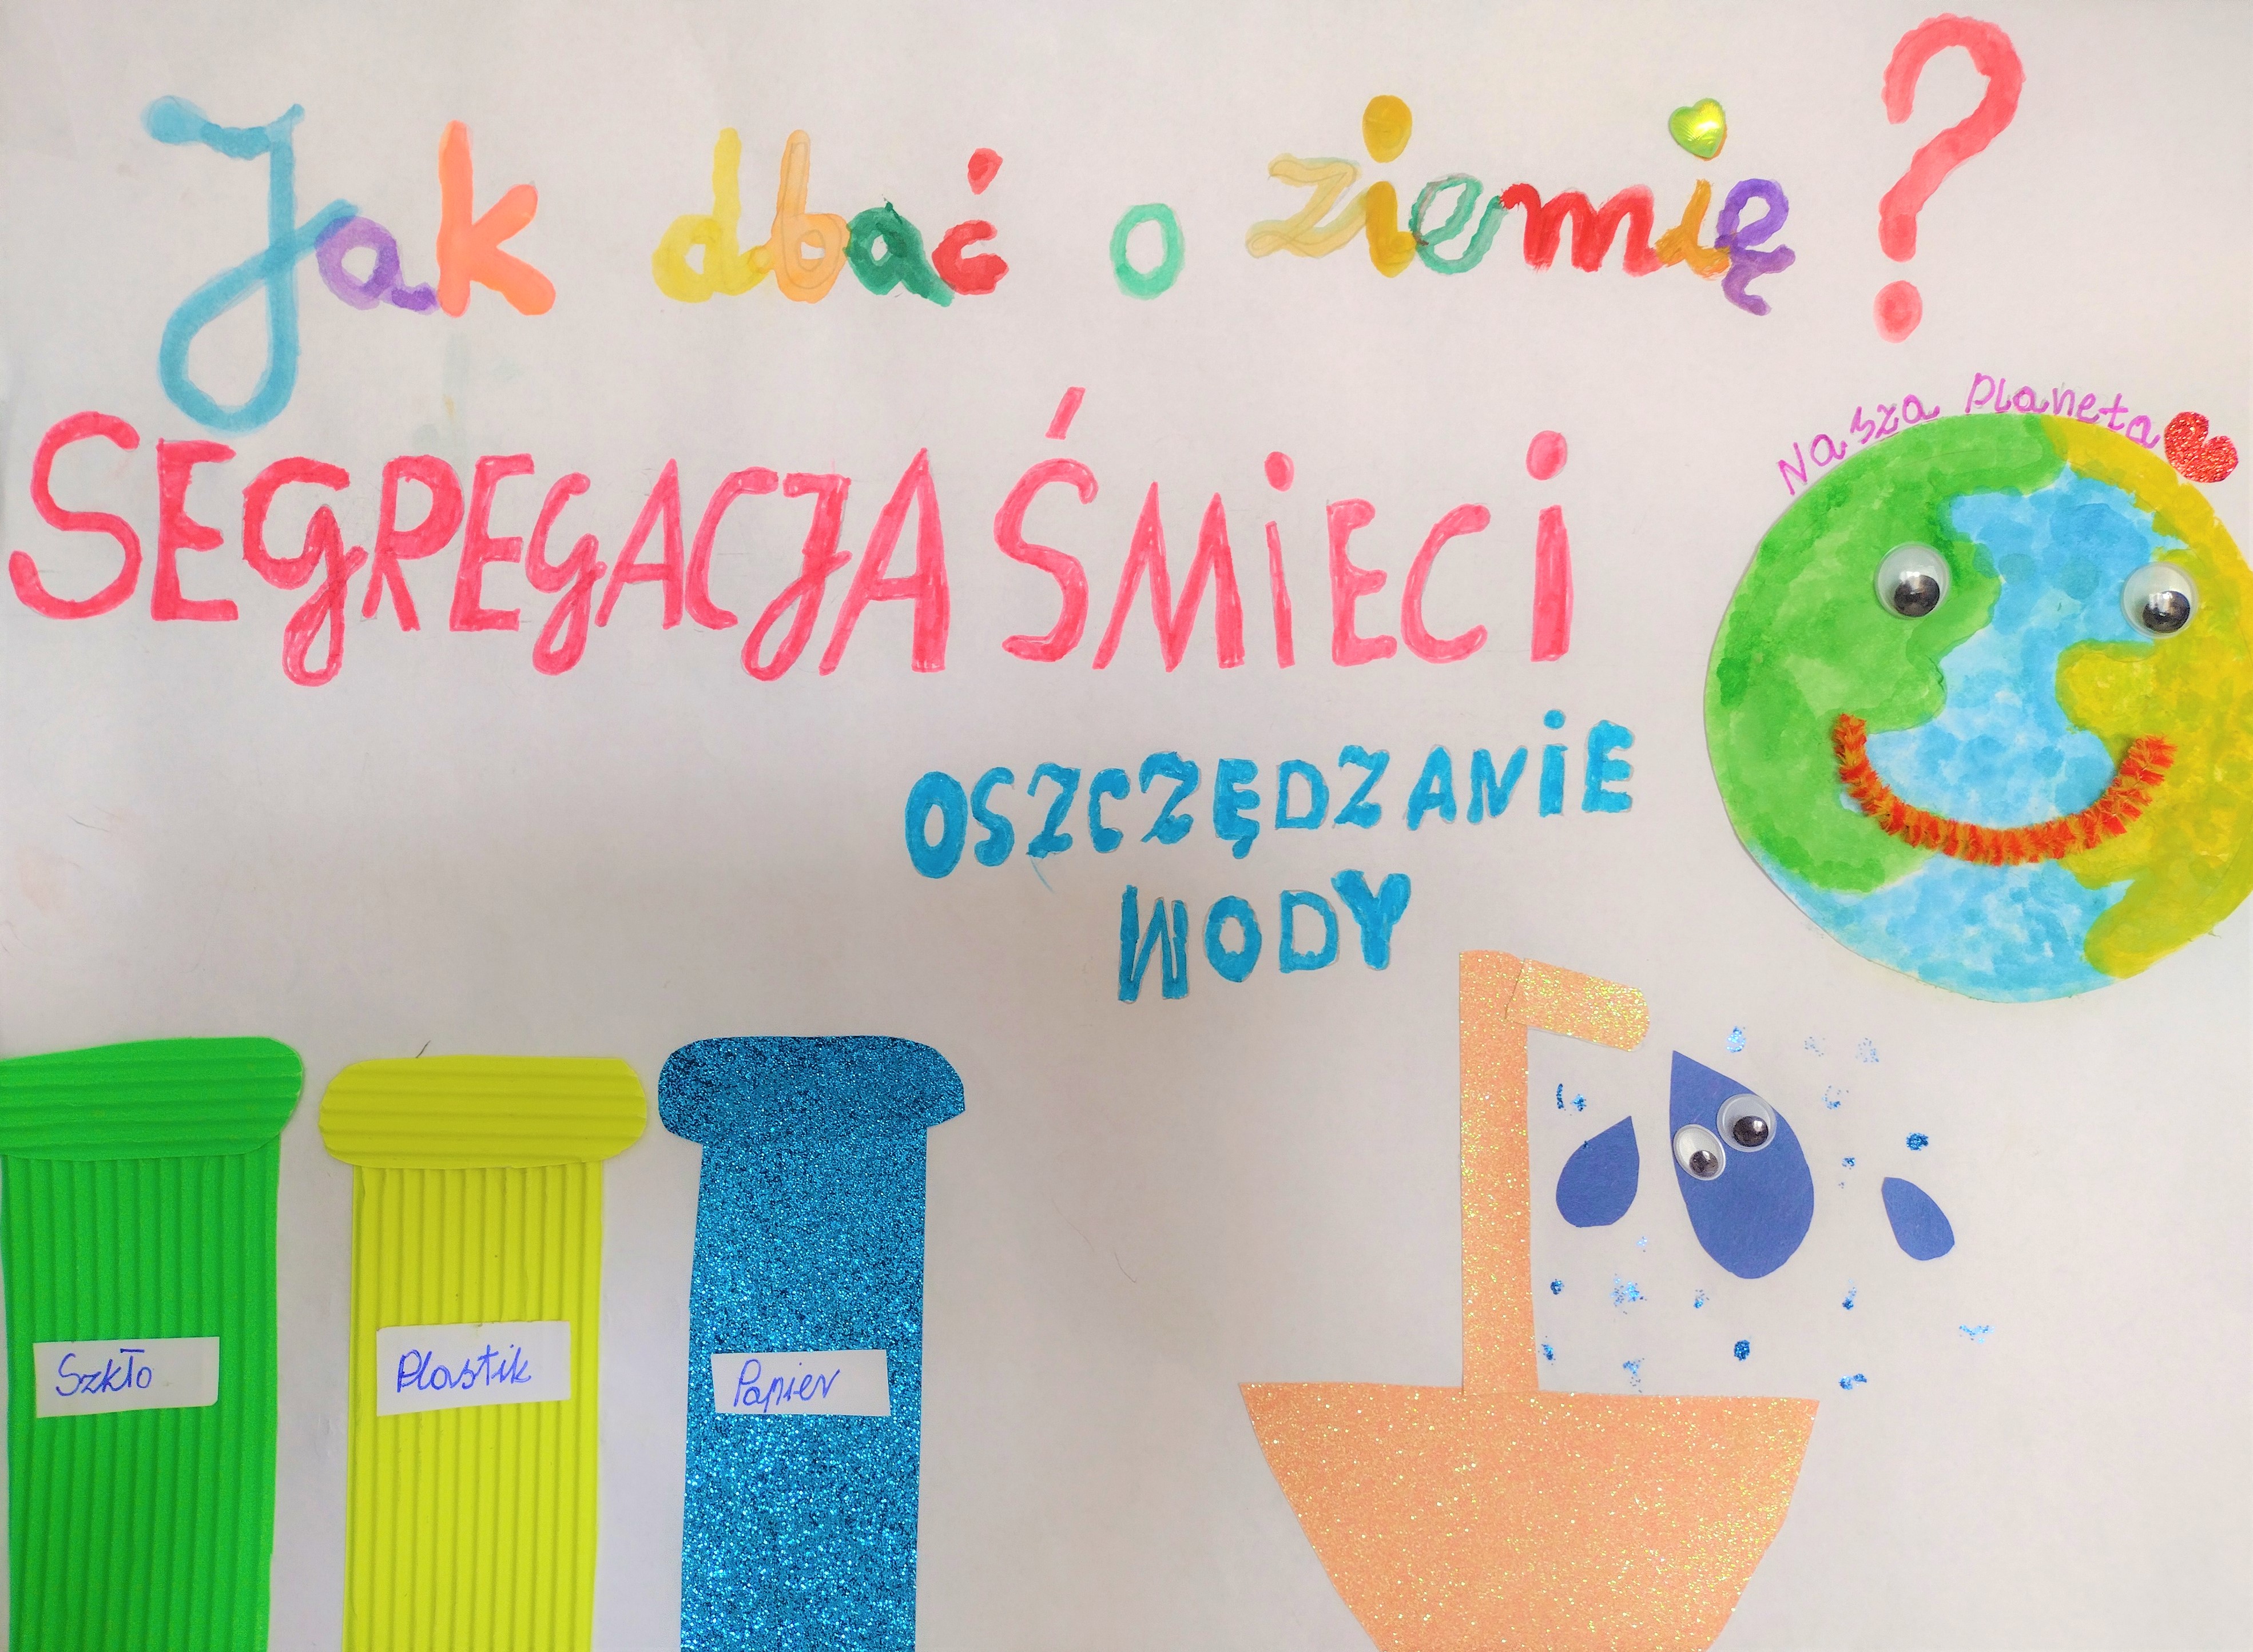 Jak dbać o ziemię?
SEGREGACJA ŚMiECi
Nasza Planeta
OSZCZĘDZANiE
WODY
Szkło
Plastik
Papier